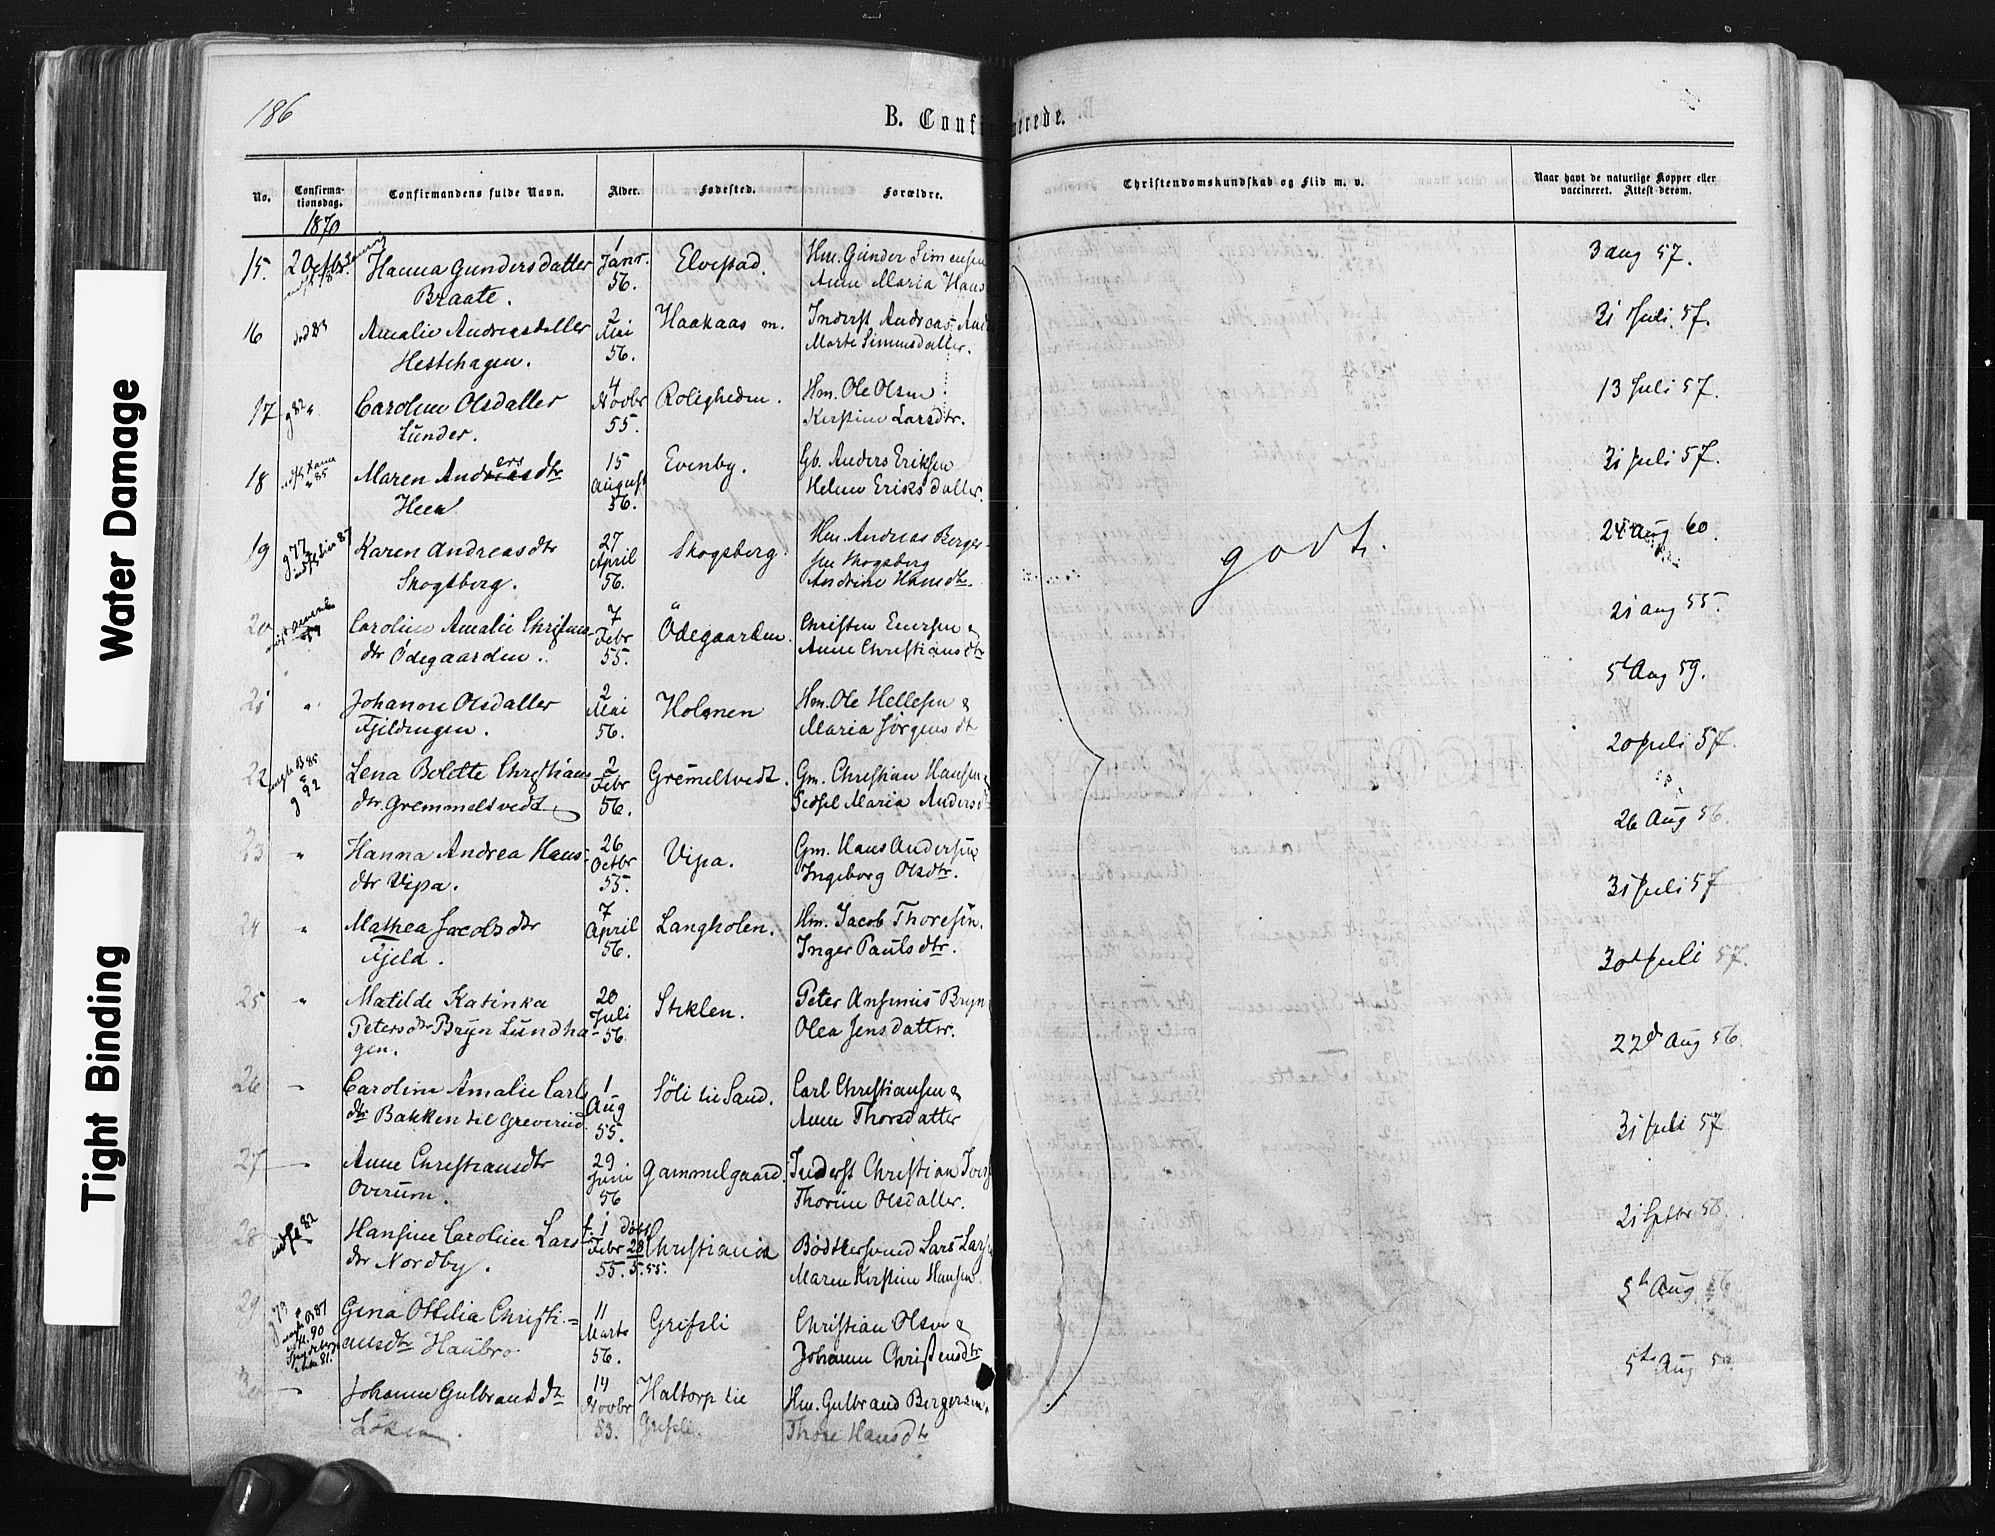 186
B. Confirmerede.
No.
Confirma-
tionsdag.
Confirmandens fulde Navn.
Alder.
Fødested.
Forældre.
Christendomskundskab og Flid m. v.
Naar havt de naturlige Kopper eller
vaccineret. Attest derom.
1870
15. 2 Octbr. Hanna Gundersdatter 1 Janr. 56. Elvestad. Hm. Gunder Simensen 3 aug 57.
Braate. Anne Maria Hans
16 Amalie Andreasdatter 2 Mai 56. Haakaas m. Inderst Andreas 31 Juli 57.
Hestehagen. Marte Simensdatter.
17 g 82 Caroline Olsdatter 4 Novbr 55. Roligheden. Hm. Ole Olsen 13 Juli 57.
Lunder. Kirstine Larsdtr.
18 Maren Andersdtr 15 August 56. Evenby. Gb. Anders Eriksen 31 Juli 57.
Heen Helene Eriksdatter.
19 g 77 Karen Andreasdtr 27 April 56. Skogsberg. Hm. Andreas Berger- 24 Aug 60.
Skogsberg. sen Skogsberg
Andrine Hansdtr.
godt.
20 Caroline Amalie Christens- 7 Febr 55. Ödegaarden. Christen Enersen & 21 aug 55.
dtr Ödegaarden. Anne Christiansdtr
21 " Johanne Olsdatter 2 Mai 56. Holmen Hm. Ole Hellesen & 5t Aug 59.
Fjeldengen. Maria Jørgensdt
22 Lena Bolette Christians 2 Febr 56. Gremeltvedt. Gm. Christian Hansen & 20 Juli 57.
g 92 dtr Gremmeltvedt Sidsel Maria Andersdtr
23 " Hanna Andrea Hans- 26 Octbr 55. Vipa. Gm. Hans Andersen 26 Aug 56.
dtr Vipa. Ingeborg Olsdtr.
24 " Mathea Jacobsdtr 7 April 56. Langholen. Hm. Jacob Thoresen. 31 Juli 57
Fjeld. Inger Paulsdtr.
25 " Matilde Katinka 20 Juli 56. Stiklen. Peter Ansinius Bryn 30t Juli 57.
Petersdtr Bryn Lundha- Olea Jensdatter.
gen.
26 Caroline Amalie Carls 1 Aug 55. Søli til Sand. Carl Christiansen & 22d Aug 56.
dtr Bakken til Greverud Anne Thorsdatter
27 Anne Christiansdtr 29 Juni 56 Gammelgaard. Inderst Christian 31 Juli 57
Overum. Thorine Olsdatter.
28 Hansine Caroline Lars f. 1 Febr 55. døbt 28 5. 55. Christiania Bødtkersvend Lars Lars 21 Sptbr 58.
dtr Nordby. Maren Kirstine Hansen.
29 Gina Ottilia Christi- 11 Marts 56. Grefsli Christian Olsen & 5te Aug 56
ansdtr Haubro Johanne Christensdtr
30 Johanne Gulbrandsdtr 14 Novbr 53. Haltorp til Hm. Gulbrand Bergersen. 5te Aug
Løken. Grefsli. Thore Hansdtr
Water Damage
Tight Binding